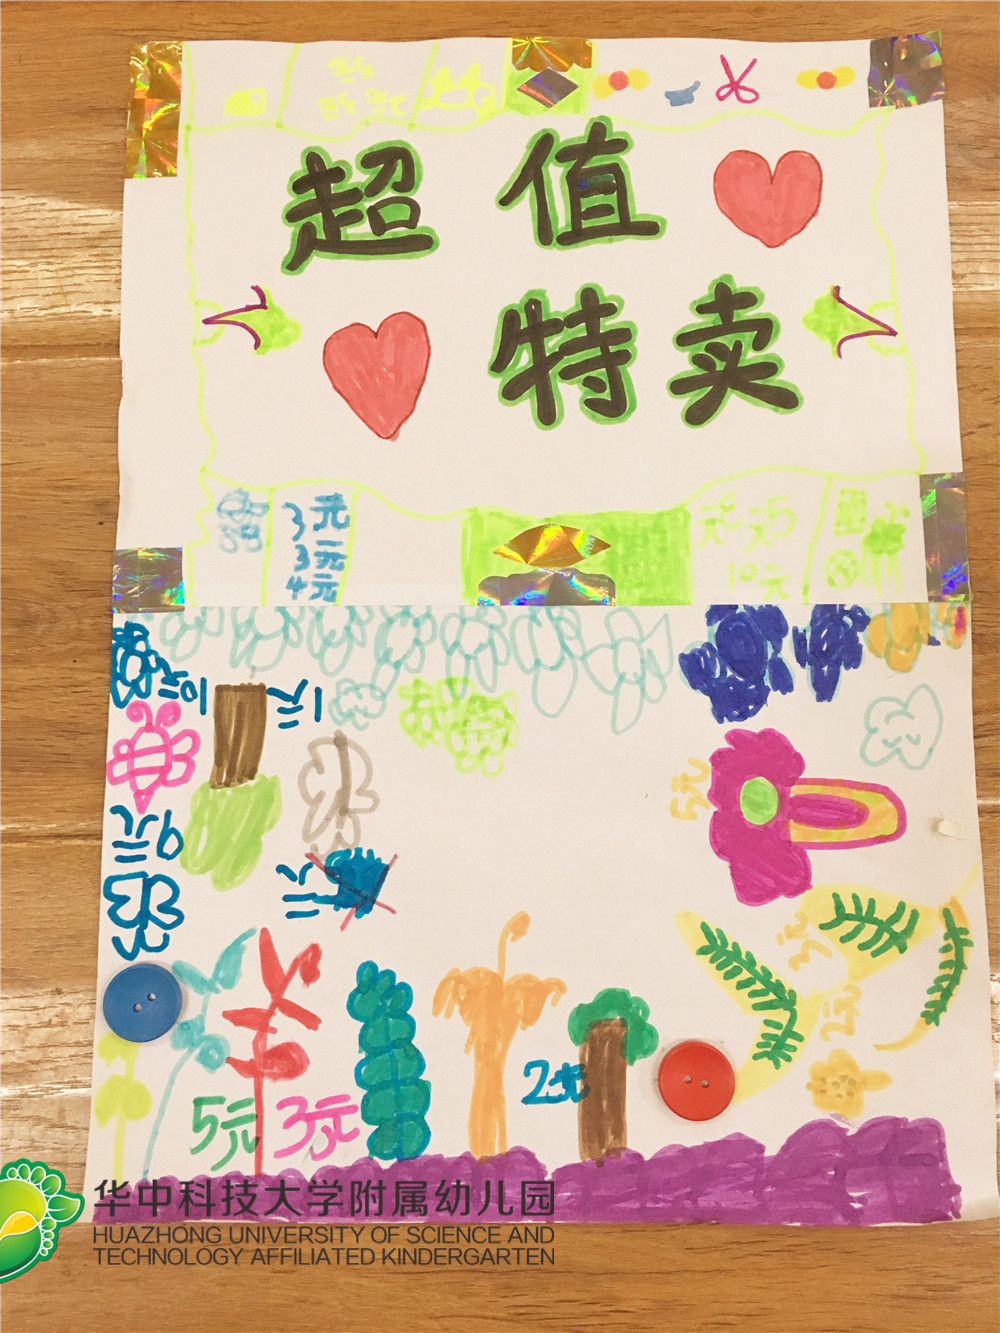 超 值
特 卖
3元
3元
4元
元 元
10元
10元
1元
9元
5元
3元
2元
5元 3元
2元
华中科技大学附属幼儿园
HUAZHONG UNIVERSITY OF SCIENCE AND
TECHNOLOGY AFFILIATED KINDERGARTEN